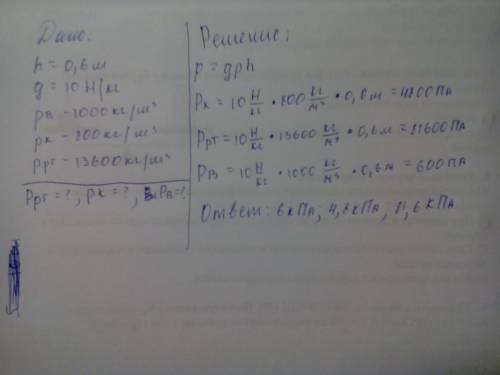 Дано:
h = 0,6 м
g = 10 Н/кг
ρв - 1000 кг/м³
ρк - 800 кг/м³
ρрт - 13600 кг/м³
Pрт = ?, pк = ?, Pв = ?
Решение:
p = gρh
Pк = 10 Н/кг • 800 кг/м³ • 0,6 м = 4800 Па
Pрт = 10 Н/кг • 13600 кг/м³ • 0,6 м = 81600 Па
Pв = 10 Н/кг • 1000 кг/м³ • 0,6 м = 600 Па
Ответ: 6 кПа; 4,8 кПа; 81,6 кПа